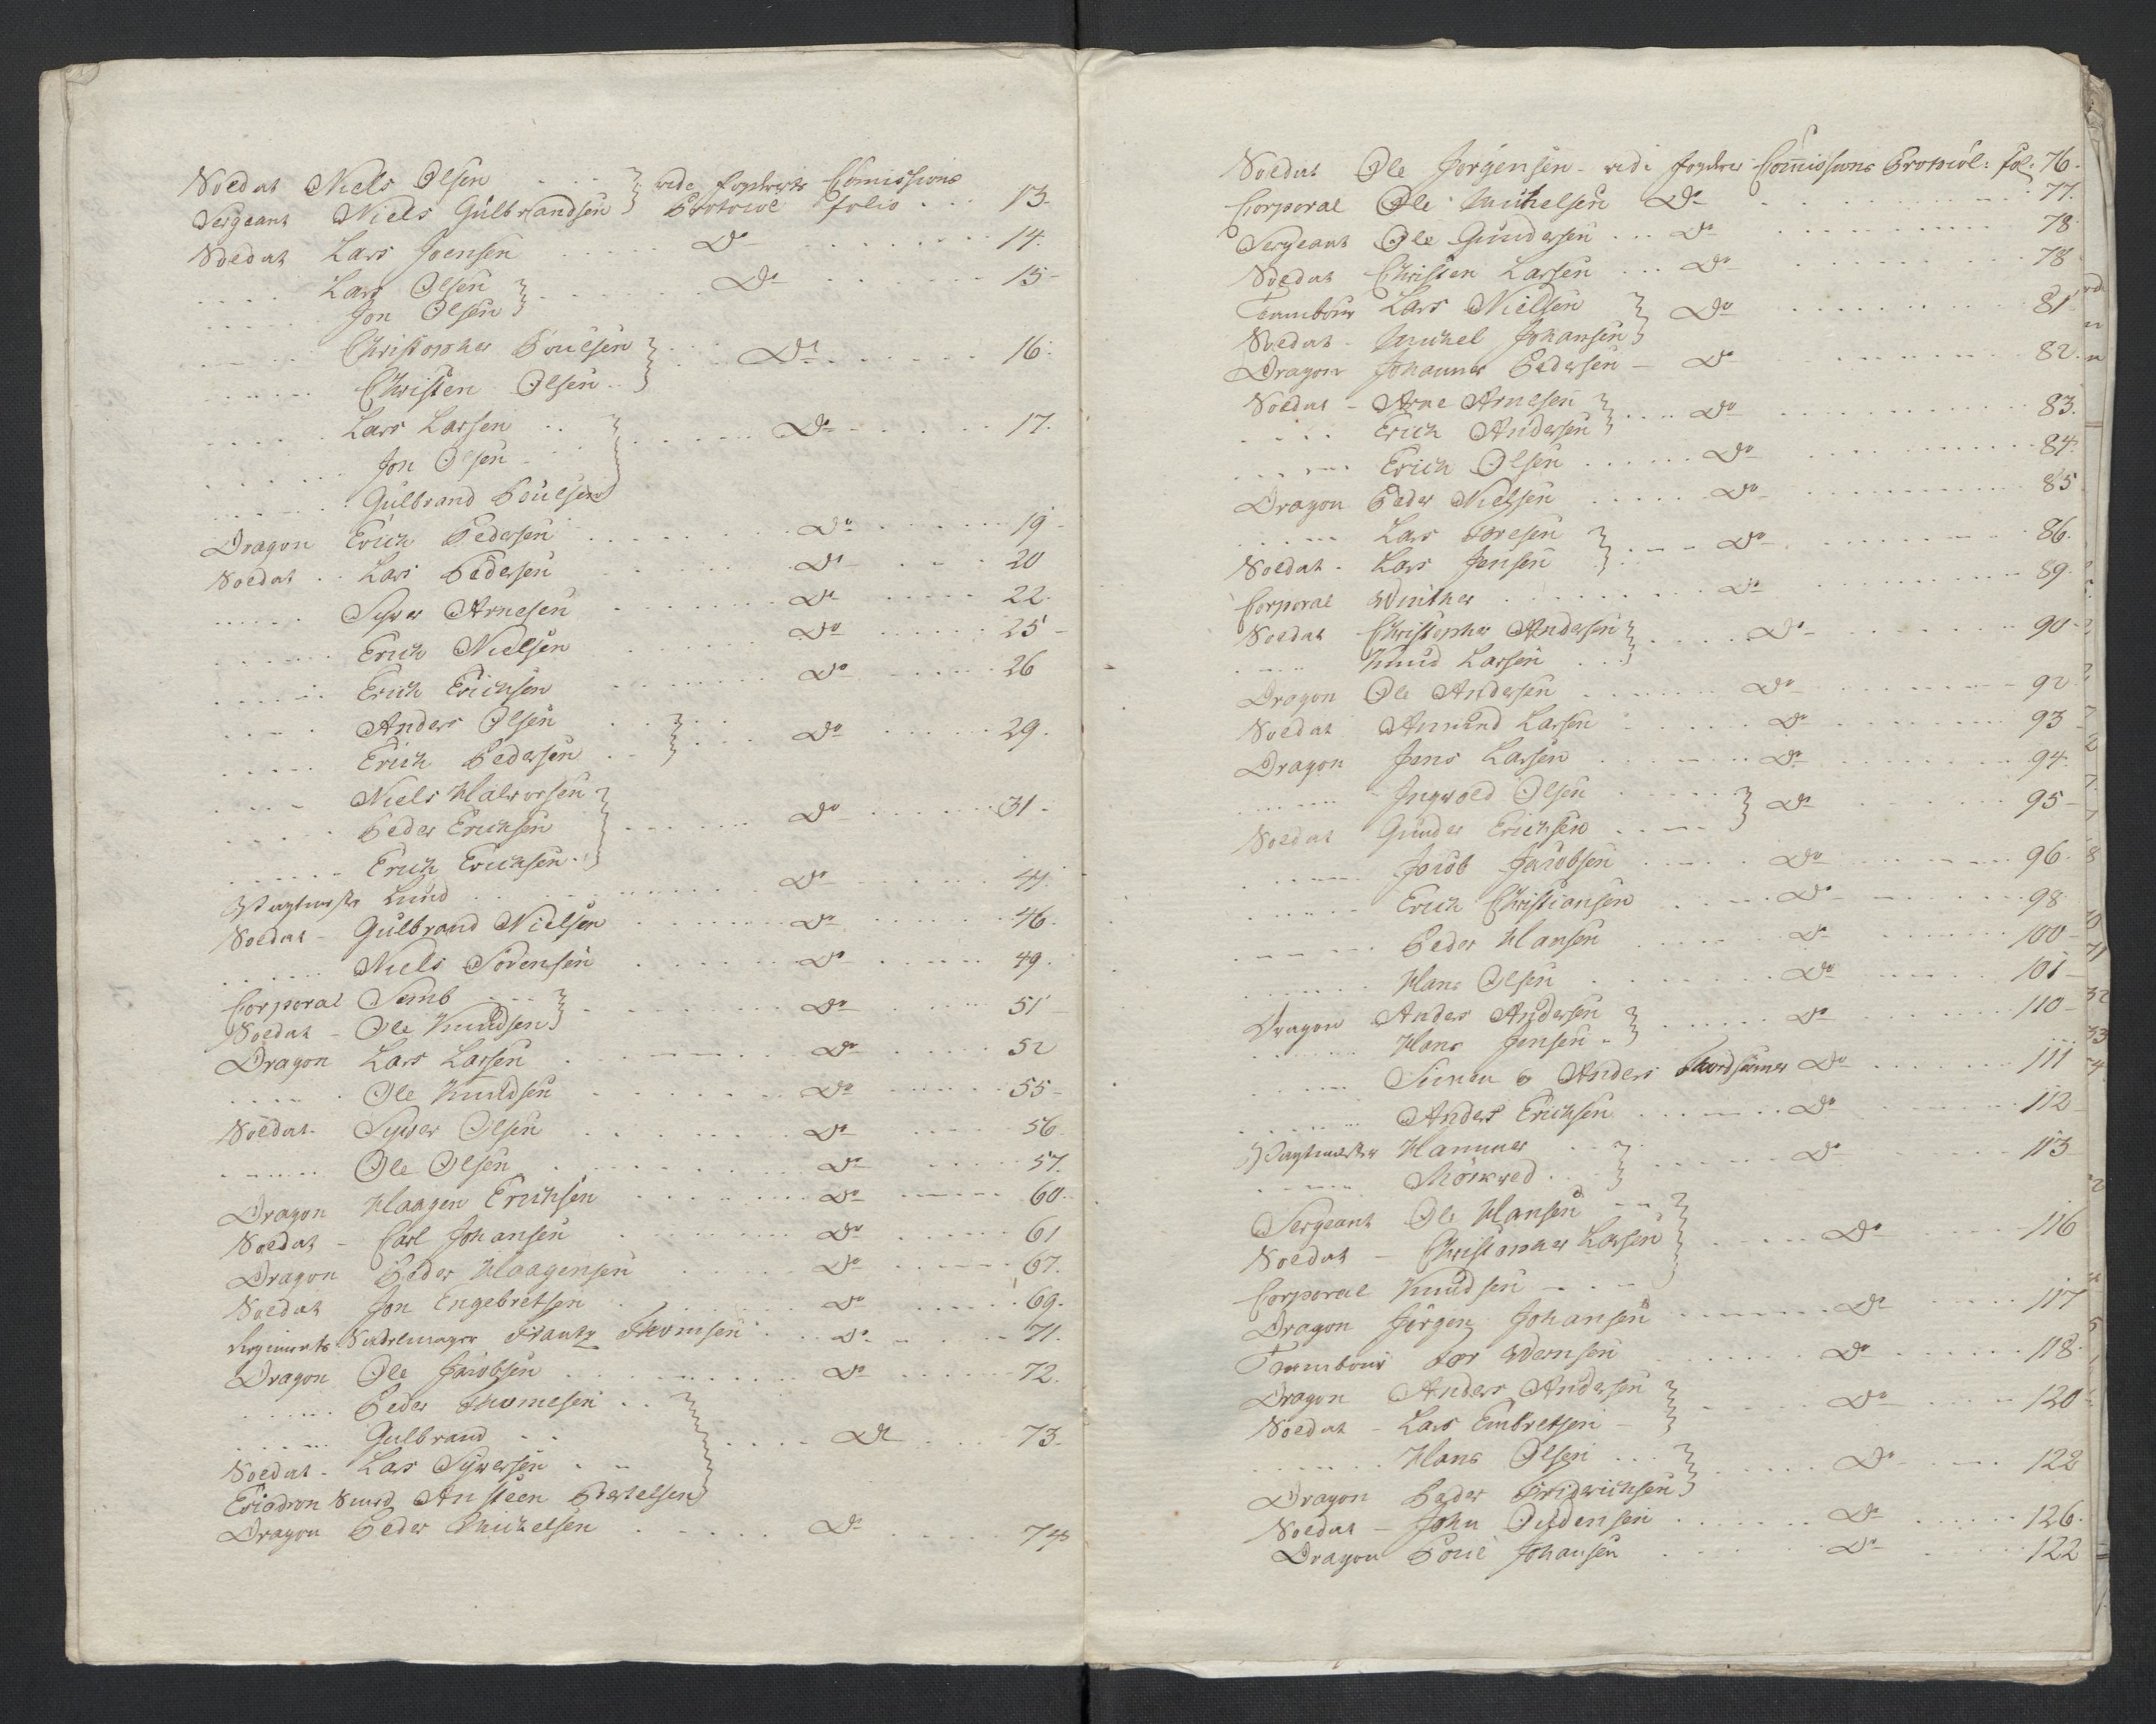 Soldat Niels Olsen . . . } vide Fogderts Comissions
Sergeant Niels Gulbrandsen } Protocol folio . . . 13.
Soldat Lars Joensen . . . D° . . . 14.
. . . . Lars Olsen } . . . D° . . . 15
. . . . Jon Olsen }
. . . . Christopher Poulsen } . . . D° . . . 16.
. . . . Christen Olsen }
. . . . Lars Larsen . . } . . . D° . . . 17.
. . . . Jon Olsen }
. . . . Gulbrand Poulsen }
Dragon Erich Pedersen . . . D° . . . 19
Soldat . . Lars Pedersen . . . D° . . . 20
. . . . Syver Arnesen . . . D° . . . 22.
. . . . Erich Nielsen . . . D° . . . 25
. . . . Erich Erichsen . . . D° . . . 26
. . . . Anders Olsen . . } . . . D° . . . 29.
. . . . Erich Pedersen . . }
. . . . Niels Halvorsen }
. . . . Peder Erichsen } . . . D° . . . 31.
. . . . Erich Erichsen }
Wagtmester Lund . . . D° . . . 44.
Soldat - Gulbrand Nielsen . . . D° . . . 46.
. . . . Niels Sörensen . . . D° . . . 49.
Corporal Semb . . } . . . D° . . . 51
Soldat - Ole Knudsen }
Dragon Lars Larsen . . . D° . . . 52
. . . . Ole Knudsen . . . D° . . . 55
Soldat. Syver Olsen . . . D° . . . 56.
. . . . Ole Olsen . . . D° . . . 57.
Dragon Haagen Erichsen . . . D° . . . 60.
Soldat - Carl Johansen . . . D° . . . 61
Dragon Peder Haagensen . . . D° . . . 67.
Soldat Jon Engebretsen . . . D° . . . 69.
Regiments Frantz Thomsen . . . D° . . . 71.
Dragon Ole Jacobsen . . . D° . . . 72.
. . . . Peder Thomesen . . }
. . . . Gulbrand . . } . . . D° . . . 73.
Soldat. Lars Syversen . . }
Ansteen Bertelsen }
Dragon Peder Michelsen . . . D° . . . 74
Soldat Ole Jörgensen - vide Fogderts Comissions Protocol: fol: 76.
Corporal Ole Michelsen D° . . . 77.
Sergeant Ole Gundersen . . . D° . . . 78
Soldat Christen Larsen . . . D° . . . 78
Tambour Lars Nielsen } D° . . . 81
Soldat - Michel Johansen }
Dragon Johannes Pedersen - D° . . . 82.
Soldat - Arne Arnesen } . . . D° . . . 83.
. . . . Erich Andersen }
. . . . Erich Olsen . . . D° . . . 84.
Dragon Peder Nielsen . . . D° . . . 85
. . . . Lars Toresen } . . . D° . . . 86.
Soldat - Lars Jensen }
Corporal Winther . . . D° . . . 89.
Soldat Christopher Andersen } . . . D° . . . 90
. . . . Knud Larsen . . }
Dragon Ole Andersen . . . D° . . . 92
Soldat Amund Larsen . . . D° . . . 93
Dragon Jens Larsen . . . D° . . . 94.
. . . . Ingwold Olsen . . . } D° . . . 95
Soldat Gunder Erichsen . . . }
. . . . Jacob Jacobsen . . . D° . . . 96.
. . . . Erich Christiansen . . . D° . . . 98
. . . . Peder Hansen . . . D° . . . 100
. . . . Hans Olsen . . . D° . . . 101
Dragon Anders Andersen } . . . D° . . . 110
. . . . Hans Jensen . }
. . . . Simen & Anders D° . . . 111
. . . . Anders Erichsen . . . D° . . . 112
Wagtmester Hammer . . } . . . D° . . . 113
. . . . Mörkved . . }
Sergeant Ole Hansen . . }
Soldat - Christopher Larsen } . . . D° . . . 116
Corporal Knudsen - . . - }
Dragon Jörgen Johansen . . . D° . . . 117
Tambour Tor Wernsen . . . D° . . . 118.
Dragon Anders Andersen } . . . D° . . . 120
Soldat - Lars Embretsen - }
. . . . Hans Olsen . . . } . . . D° . . . 122
Dragon Peder Friderichsen }
Soldat - John Oudensen . . . D° . . . 126.
Dragon Poul Johansen . . . D° . . . 122